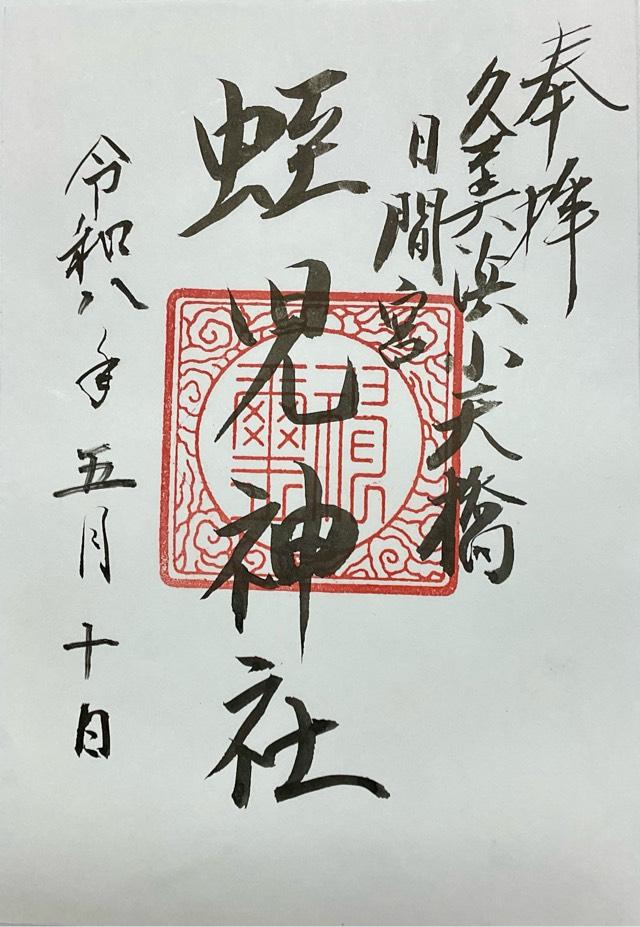 奉拝
久美浜小天橋
日間宮
蛭児神社
令和八年五月十日